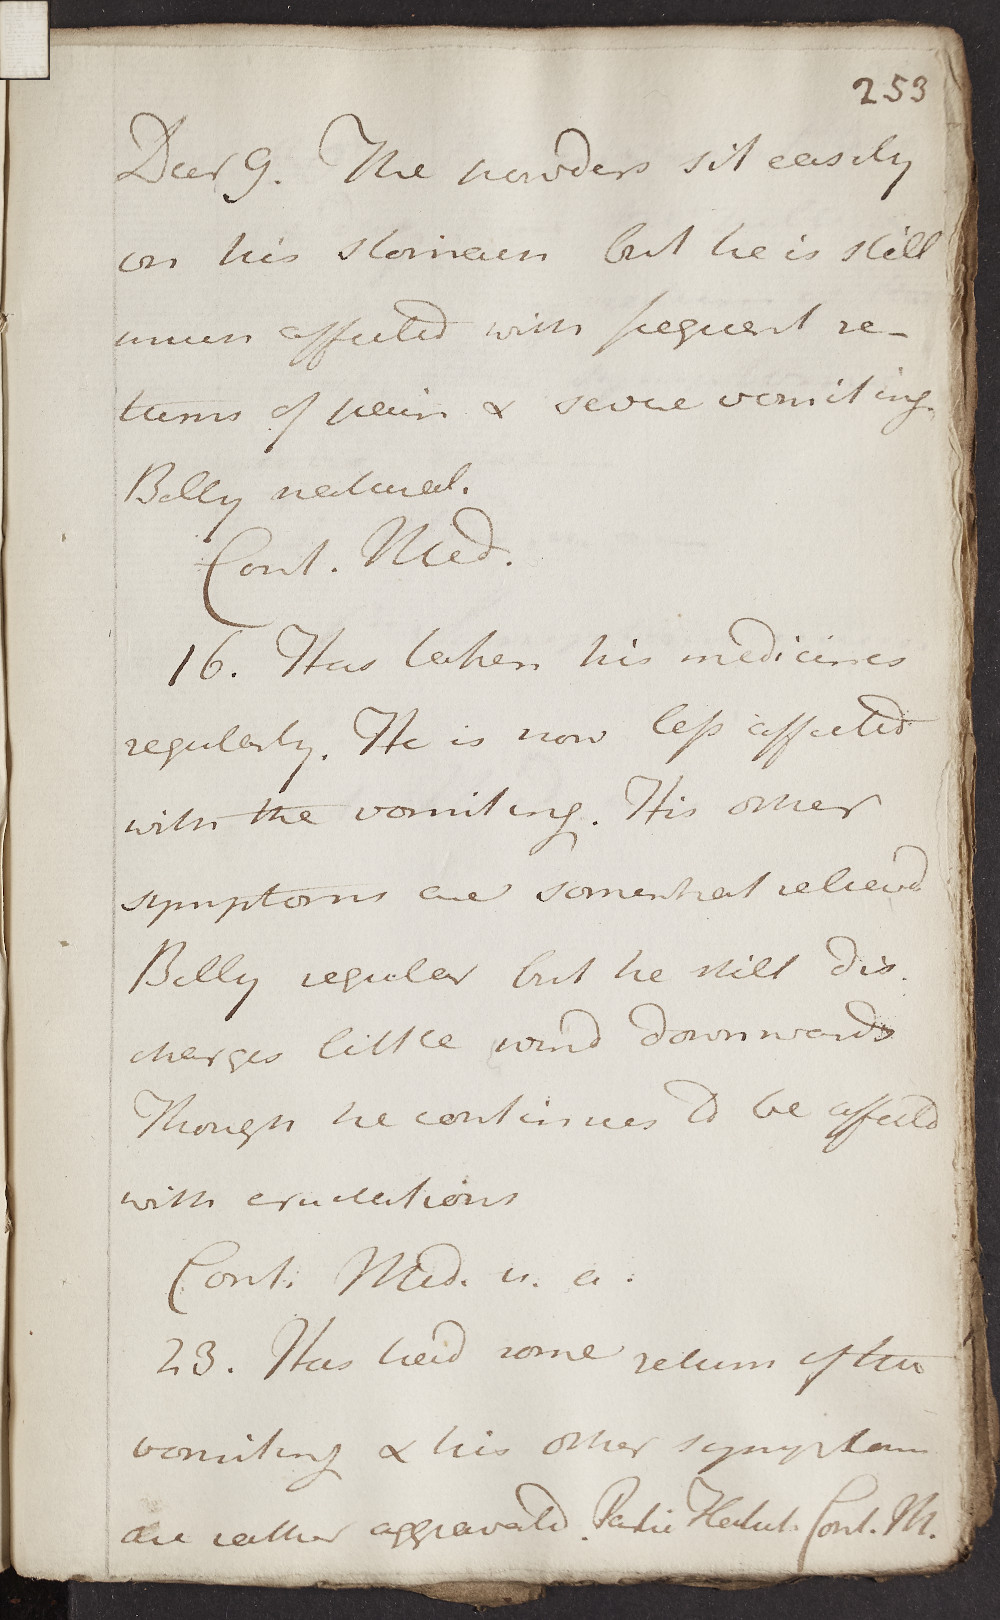 253
Decr 9. The powders sit easily
on his stomach but he is still
much affected with frequent re-
turns of pain & severe vomiting.
Belly natural.
Cont. Med.
16. Has taken his medicines
regularly. He is now less affected
with the vomiting. His other
symptoms are somewhat relieved
Belly regular but he still dis-
charges little wind downwards
Though he continues to be affected
with eructations
Cont. Med. u. a.
23. Has had some return of the
vomiting & his other symptoms
are rather aggravated. Cont. M.